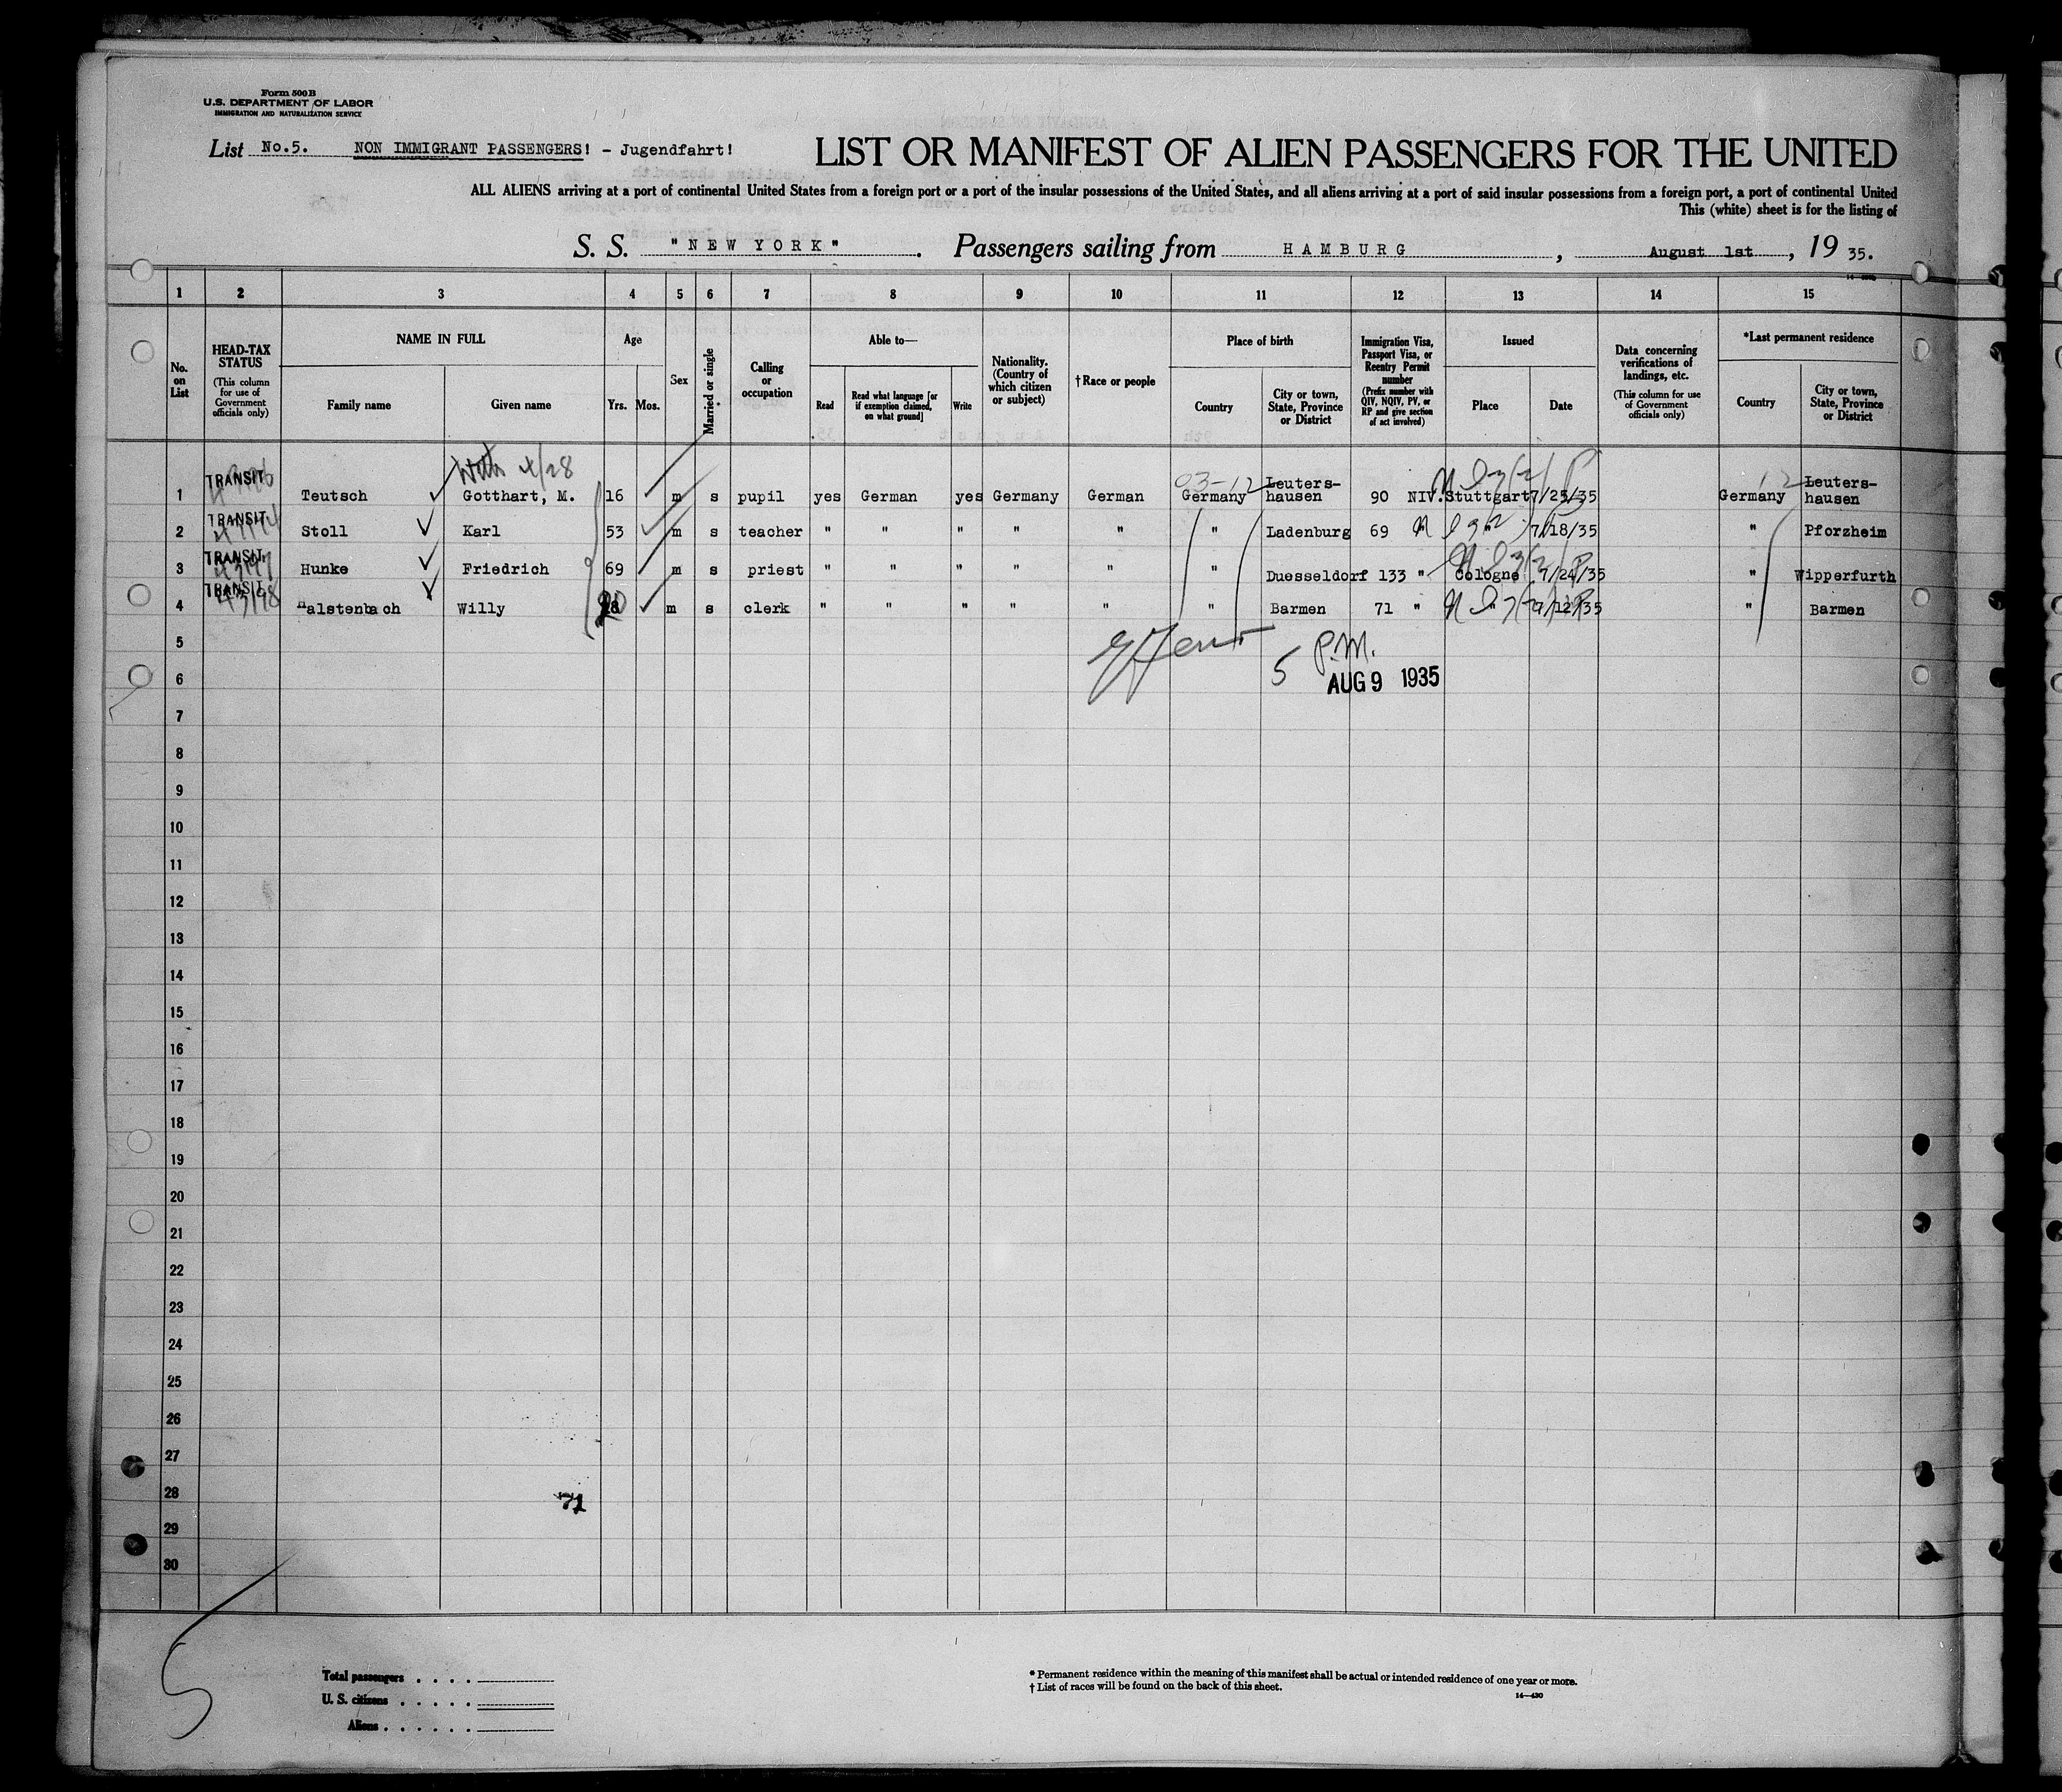 Form 500B
U.S. DEPARTMENT OF LABOR
IMMIGRATION AND NATURALIZATION SERVICE
List No.5. NON IMMIGRANT PASSENGERS! - Jugendfahrt!
LIST OR MANIFEST OF ALIEN PASSENGERS FOR THE UNITED
ALL ALIENS arriving at a port of continental United States from a foreign port or a port of the insular possessions of the United States, and all aliens arriving at a port of said insular possessions from a foreign port, a port of continental United
This (white) sheet is for the listing of
S. S. "NEW YORK". Passengers sailing from HAMBURG, August 1st, 1935.
1 2 3 4 5 6 7 8 9 10 11 12 13 14 15
No. on List
HEAD-TAX STATUS (This column for use of Government officials only)
NAME IN FULL
Family name
Given name
Age
Yrs. Mos.
Sex
Married or single
Calling or occupation
Able to—
Read
Read what language [or if exemption claimed, on what ground]
Write
Nationality. (Country of which citizen or subject)
†Race or people
Place of birth
Country
City or town, State, Province or District
Immigration Visa, Passport Visa, or Reentry Permit number (Prefix number with QIV, NQIV, PV, or RP and give section of act involved)
Issued
Place
Date
Data concerning verifications of landings, etc. (This column for use of Government officials only)
*Last permanent residence
Country
City or town, State, Province or District
4/28
03-12
12
1 TRANSIT Teutsch Gotthart, M. 16 m s pupil yes German yes Germany German Germany Leuters-hausen 90 NIV. Stuttgart 7/25/35 Germany Leuters-hausen
2 TRANSIT Stoll Karl 53 m s teacher " " " " " " Ladenburg 69 " " 7/18/35 " Pforzheim
3 TRANSIT. Hunke Friedrich 69 m s priest " " " " " " Duesseldorf 133 " Cologne 7/24/35 " Wipperfurth
4 TRANSIT. Halstenbach Willy 20 m s clerk " " " " " " Barmen 71 " " 7/12/35 " Barmen
5
5 P.M.
6
AUG 9 1935
7
8
9
10
11
12
13
14
15
16
17
18
19
20
21
22
23
24
25
26
27
28
71
29
30
5
Total passengers
U. S. citizens
Aliens
* Permanent residence within the meaning of this manifest shall be actual or intended residence of one year or more.
† List of races will be found on the back of this sheet.
14—430